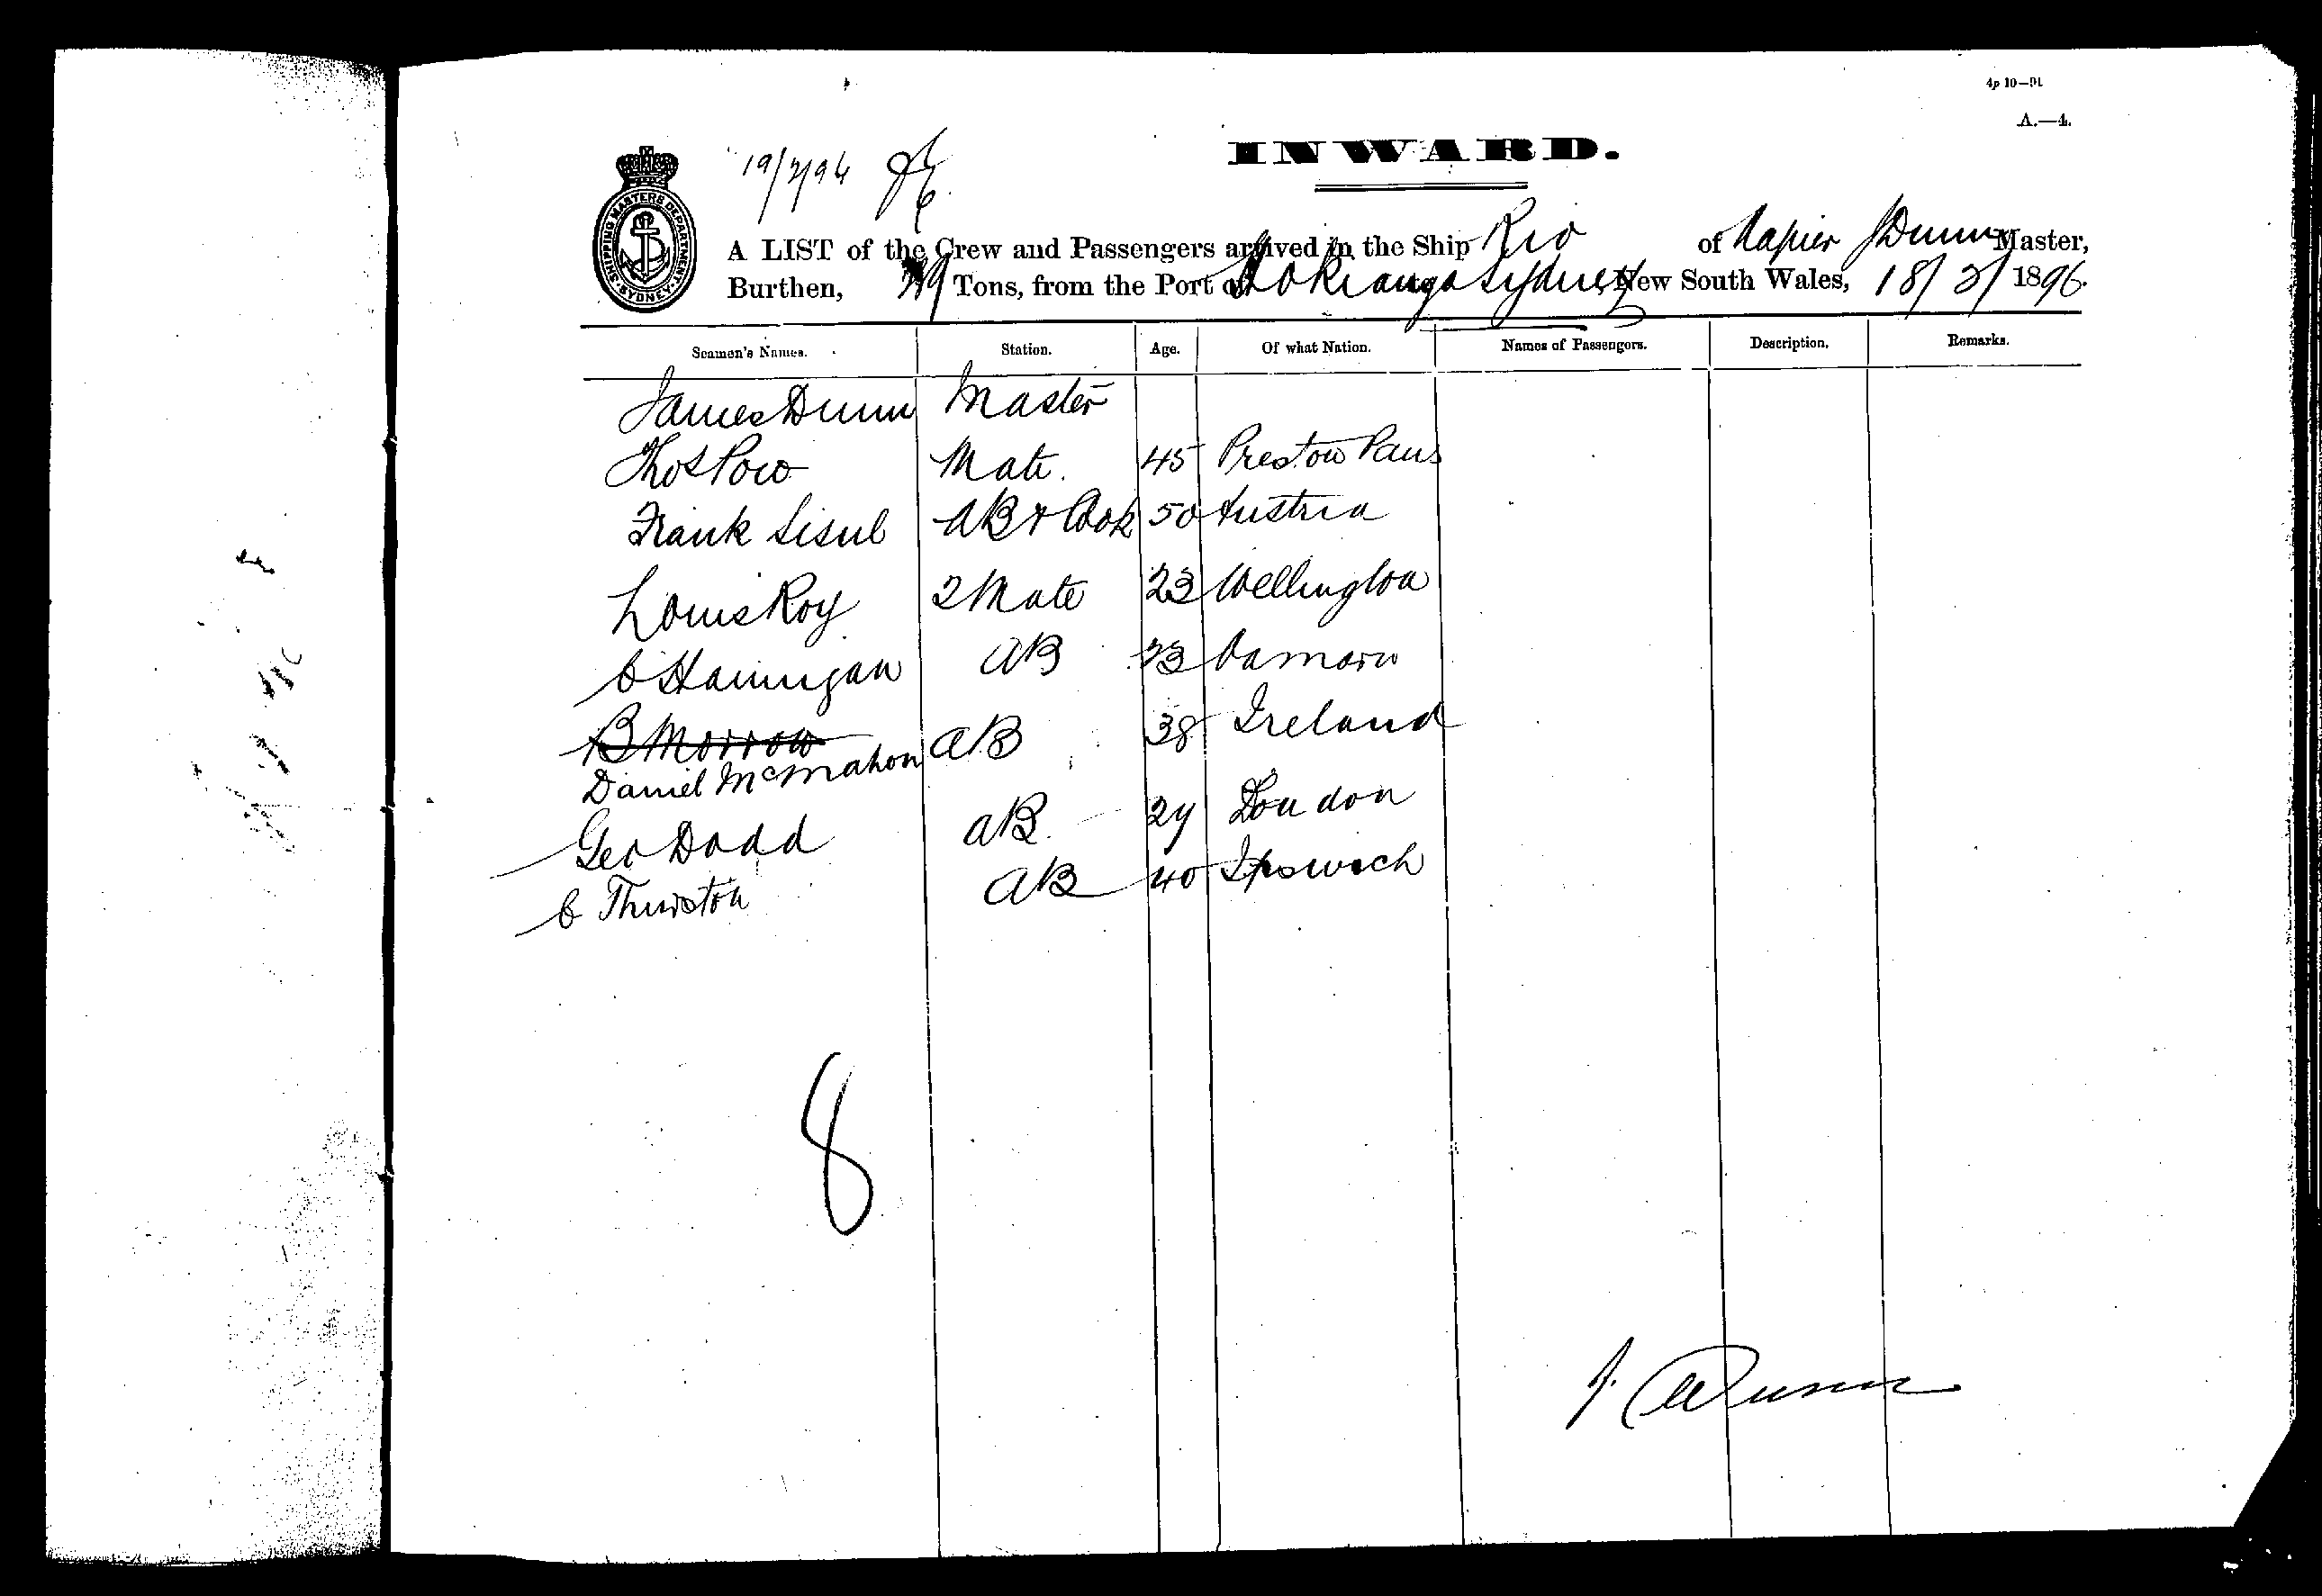 4p 10—91
A.—4.
INWARD.
19/2/96
SHIPPING MASTERS DEPARTMENT SYDNEY
A LIST of the Crew and Passengers arrived in the Ship Rio of Napier J Dunn Master,
Burthen, Tons, from the Port of Hokianga to Sydney, New South Wales, 18/2/1896.
Seamen's Names. Station. Age. Of what Nation. Names of Passengers. Description. Remarks.
James Dunn Master
Thos Pow Mate. 45 Preston Pans
Frank Sisul AB & Cook 50 Austria
Louis Roy 2 Mate 23 Wellington
C Hannigan AB 23 Oamaru
B Morrow AB 38 Ireland
Daniel McMahon
Geo Dodd AB 24 London
C Thurston AB 40 Ipswich
8
J. Dunn